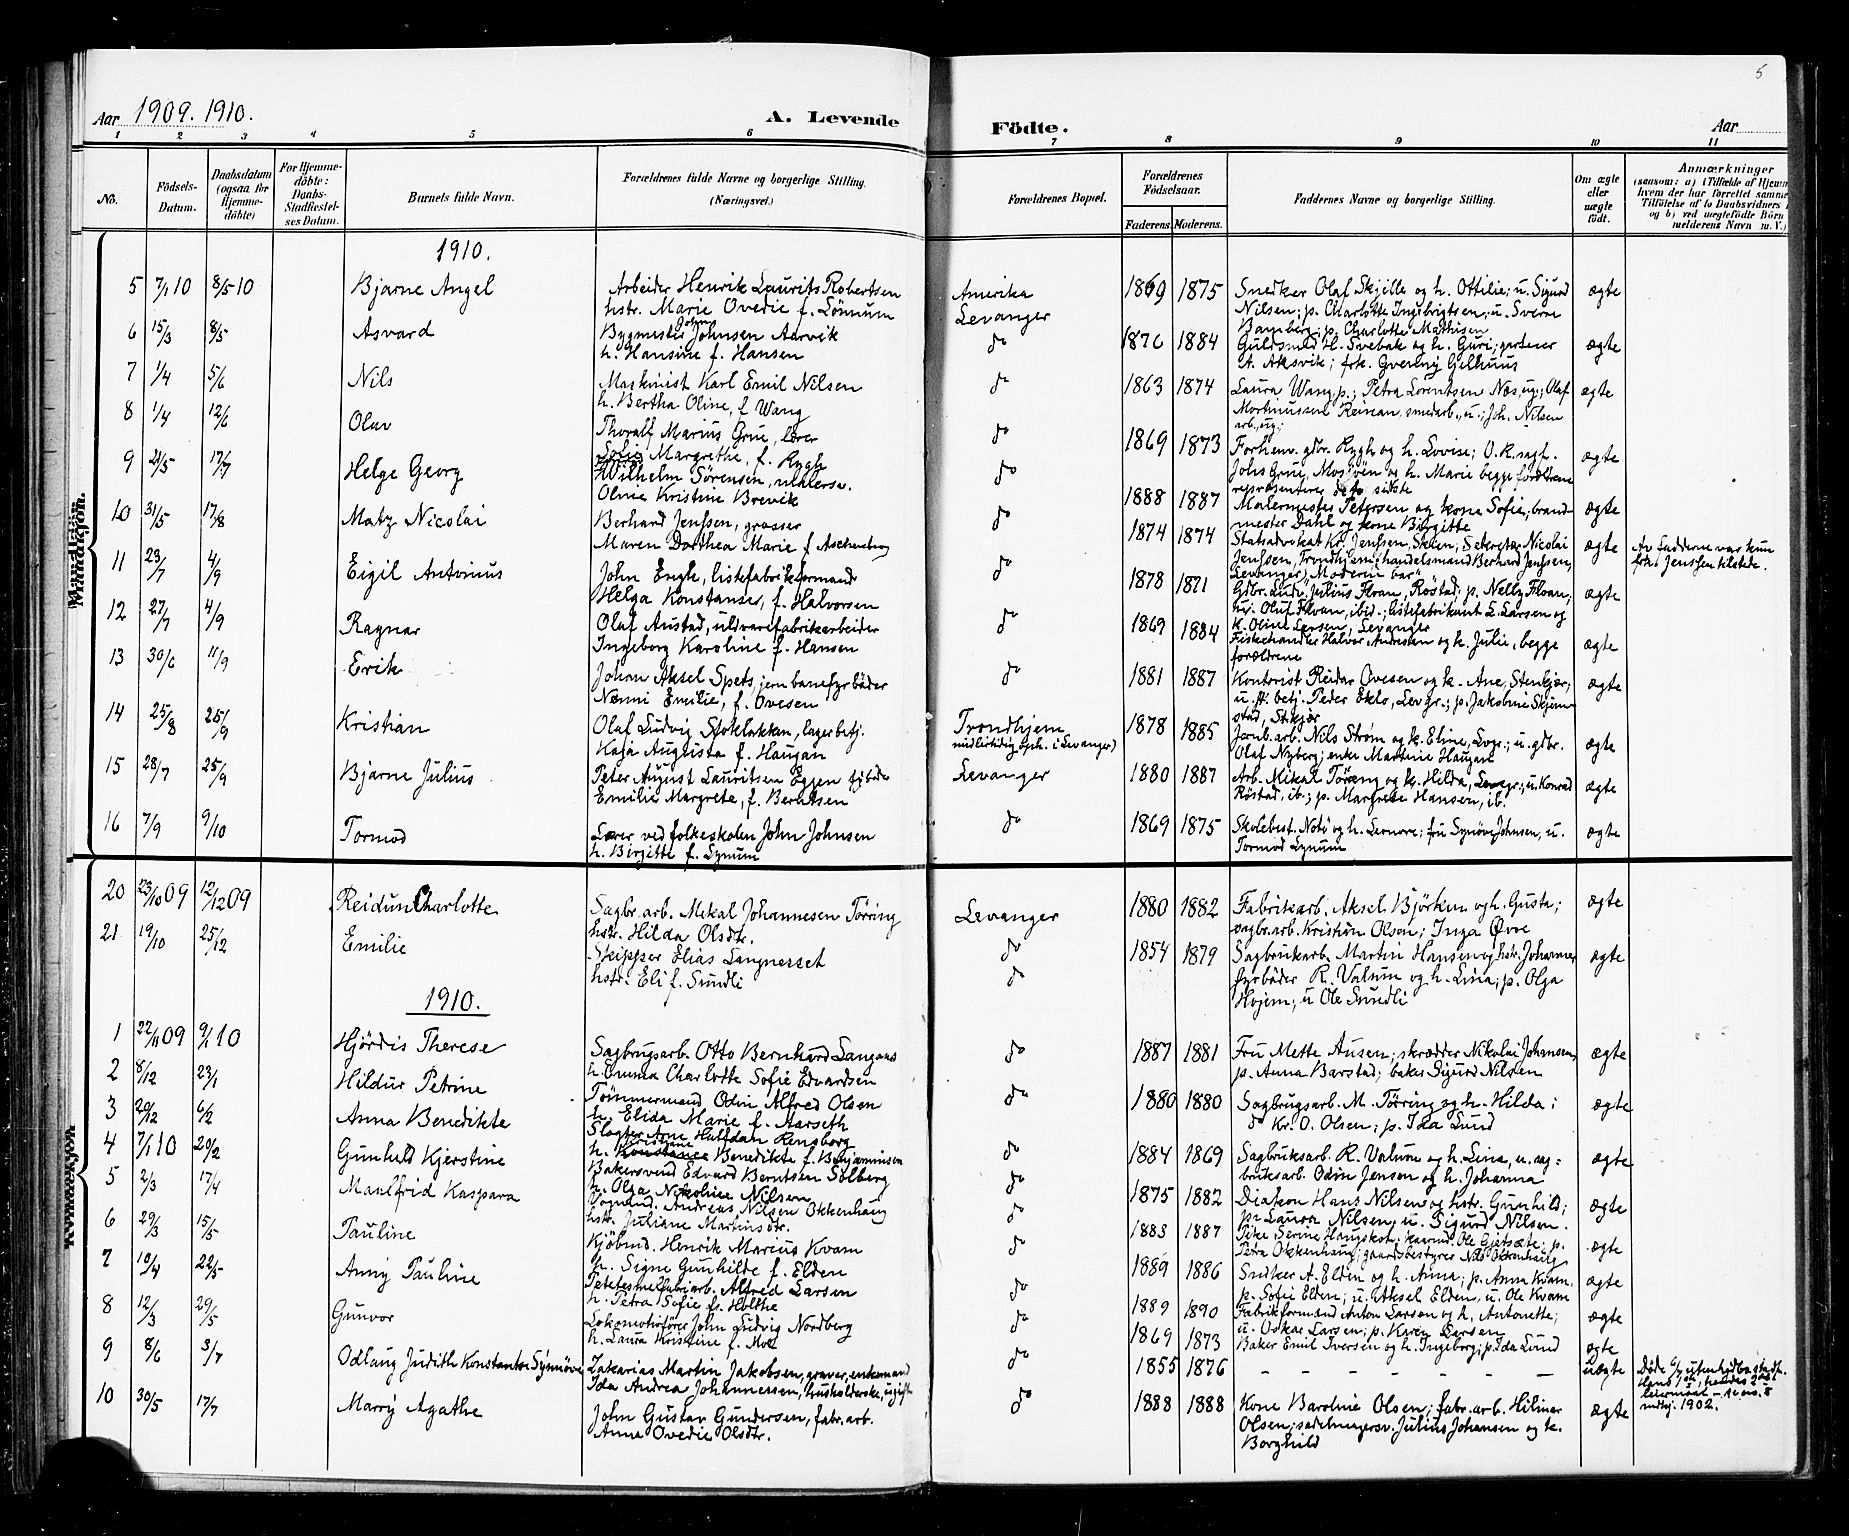 5
Aar 1909. 1910.
A. Levende Födte.
Aar
1 2 3 4 5 6 7 8 9 10 11
No.
Födsels-Datum.
Daabsdatum (ogsaa for Hjemme-döbte)
For Hjemme-döbte: Daabs-Stadfæstel-ses Datum.
Barnets fulde Navn.
Forældrenes fulde Navne og borgerlige Stilling. (Næringsvei.)
Forældrenes Bopæl.
Forældrenes Födselsaar.
Faderens. Moderens.
Faddernes Navne og borgerlige Stilling.
Om ægte eller uægte födt.
Anmærkninger
(saasom: a) i Tilfælde af Hjemm
hvem der har forrettet samme
Tilföielse af to Daabsvidners
og b) ved uægtefödte Börn
melderens Navn m. V.)
Mandkjön.
1910.
5 7/1 10 8/5 10 Bjarne Angel Arbeider Henrik Laurits Robertsen Amerika 1869 1875 Snedker Olaf Skjille og h. Ottilie; u. Sigurd ægte
hstr. Marie Ovedie f. Lönnum Levanger Nilsen; p. Charlotte Ingebrigtsen; u. Sverre
Bamberg; p. Charlotte Mathisen
6 15/3 8/5 Asvard Bygmester John Johnsen Aarvik do 1876 1884 Guldsmed H. Svebak og h. Guri; gartner ægte
h. Hansine f. Hansen A. Aksvik; frk. Gilhuus
7 1/4 5/6 Nils Maskinist Karl Emil Nilsen do 1863 1874 Laura Wang p.; Petra Lorentsen Næs ug.; Olaf ægte
h. Bertha Oline, f. Wang Mortinussen Reinan, smedarb., u.; Joh. Nilsen
arb., ug.;
8 1/4 12/6 Olav Thoralf Marius Grue, lærer do 1869 1873 Forhenv. gdbr. Rygh og h. Lovise; O.R. sagf. ægte
Sofie Margrethe, f. Rygh Johs Grue, Mosjöen og h. Marie begge forældrene
repræsenterer de to sidste
9 21/5 17/7 Helge Georg Wilhelm Sörensen, malersv. do 1888 1887 Malermester Petersen og kone Sofie; brand- ægte
Oline Kristine Brevik mester Dahl og kone Birgitte
10 31/5 17/8 Matz Nicolai Berhard Jenssen, grosser do 1874 1874 Statsadvokat Kr. Jenssen, Skien; Sekretær Nicolai ægte Av fadderne var kun
Maren Dorthea Marie f. Aschenberg Jenssen, Trondhjem; handelsmand Berhard Jenssen, frk. Jenssen tilstede.
Levanger; Moderen bar
11 23/7 4/9 Eigil Antonius John Engle, listefabrikformand do 1878 1871 Gdbr. Ludv. Julius Floan, Röstad; p. Nelly Floan; ægte
Helga Konstanse, f. Halvorsen u. Oluf Floan, ibid.; listefabrikant L. Larsen og
k. Oline Larsen, Levanger
12 27/7 4/9 Ragnar Olaf Austad, uldvarefabrikarbeider do 1869 1884 Fiskehandler Halvor Andresen og k. Julie, begge ægte
Ingeborg Karoline f. Hansen forældrene
13 30/6 11/9 Erik Johan Aksel Spets, jernbanefyrböder do 1881 1887 Kontorist Reidar Ovesen og k. Ane, Stenkjær; ægte
Nanni Emilie, f. Ovesen u. betj. Peder Eklo, Lev gr.; p. Jakobine Skjem-
stad, Stkjær
14 25/8 25/9 Kristian Olaf Ludvig Stoklakkan, lagerbetj. Trondhjem 1878 1885 Jernb.arb. Nils Ström og k. Eline, Lvgr.; u. gdbr. ægte
Kaja Augusta f. Haugan midlertidig oph. i Levanger) Olaf Nyberg; enke Martine Haugan
15 28/7 25/9 Bjarne Julius Peter August Lauritsen Eggen Levanger 1880 1887 Arb. Mikal Töring og k. Hilda, Levgr.; u. Konrad ægte
Emilie Margrete, f. Berntsen Röstad, ib.; p. Margrete Hansen, ib.
16 7/9 9/10 Tormod Lærer ved folkeskolen John Johnsen do 1869 1875 Skolebest. Notö og h. Leonore; fru Synöve Johnsen, u. ægte
h. Birgitte f. Lynum Tormod Lynum
Kvindekjön.
20 23/10 09 12/12 09 Reidun Charlotte Sagbr.arb. Mekal Johannesen Törring Levanger 1880 1882 Fabrikarb. Aksel Björken og h. Gusta; ægte
hstr. Hilda Olsdtr. sagbr.arb. Kristian Olsen; Inga Övre
21 19/10 25/12 Emilie Skipper Elias Langnesset do 1854 1879 Sagbrukarb. Martin Hansen og hstr. Johanna ægte
hstr. Eli f. Sundli do fyrböder R. Valum og h. Lina; p. Olga
Hojem; u. Ole Sundli
1910.
1 22/11 09 9/1 10 Hjördis Therese Sagbrugsarb. Otto Bernhard Langaas do 1887 1881 Fru Mette Ausen; skrædder Nikolai Johansen, ægte
h. Emma Charlotte Sofie Edvardsen p. Anna Barstad; baker Sigurd Nilsen
2 8/12 23/1 Hildur Petrine Tömmermand Odin Alfred Olsen do 1880 1880 Sagbrugsarb. M. Törring og h. Hilda; ægte
h. Elida Marie f. Aarseth do Kr. O. Olsen; p. Ida Lund
3 29/12 6/2 Anna Benedikte Slagter Arne Halfdan Rensberg do 1884 1869 Sagbruksarb. R. Valum og h. Lina, u. sag= ægte
h. Benedikte f. Benjaminsen bruksarb. Odin Jensen og h. Johanna
4 7/1 10 20/2 Gunhild Kjerstine Bakersvend Edvard Berntsen Solberg do 1875 1882 Diakon Hans Nilsen og hstr. Gunhild; ægte
h. Olga Nikoline Nilsen p. Laura Nilsen, u. Sigurd Nilsen.
5 2/3 17/4 Maalfrid Kaspara Andreas Nilsen Okkenhaug do 1883 1887 Pike Serine Haugskot; Ole Gjetsæte; p. ægte
hstr. Juliane Martinsdtr. Petra Okkenhaug; gaardsbestyrer Nils Okkenhaug
6 29/3 15/5 Pauline Kjöbmd. Henrik Marius Kvam do 1889 1886 Snedker A. Elden og h. Anna; p. Anna Kvam, ægte
h. Signe Gunhilde f. Elden p. Sofie Elden; u. Aksel Elden, u. Ole Kvam
7 10/4 22/5 Anny Pauline Alfred Larsen do 1889 1890 Fabrikformand Anton Larsen og h. Antonette; ægte
h. Petra Sofie f. Holthe u. Oskar Larsen; p. Karen Larsen
8 12/3 29/5 Gunvor Lokomotivförer John Ludvig Nordberg do 1869 1873 Baker Emil Iversen og h. Ingeborg; p. Ida Lund ægte
h. Laura Kristine f. Moe
9 8/6 3/7 Odlaug Judith Konstanse Synnöve Zakarias Martin Jakobsen, graver, enkemand do 1855 1876 — — — — — — uægte
Ida Andrea Johannesen, husholderske, ugift
10 30/5 17/7 Marry Agathe John Gustav Gundersen, fabr.arb. do 1888 1888 Kone Baroline Olsen; fabr.arb. Hilmar ægte
Anna Ovedie Olsdtr. Olsen; sadelmagersv. Julius Johansen og k.
Borghild
Döbt utenfor bystadt.
Hans 1ste, hendes 2det
leiermaal
indtrj. 1902.